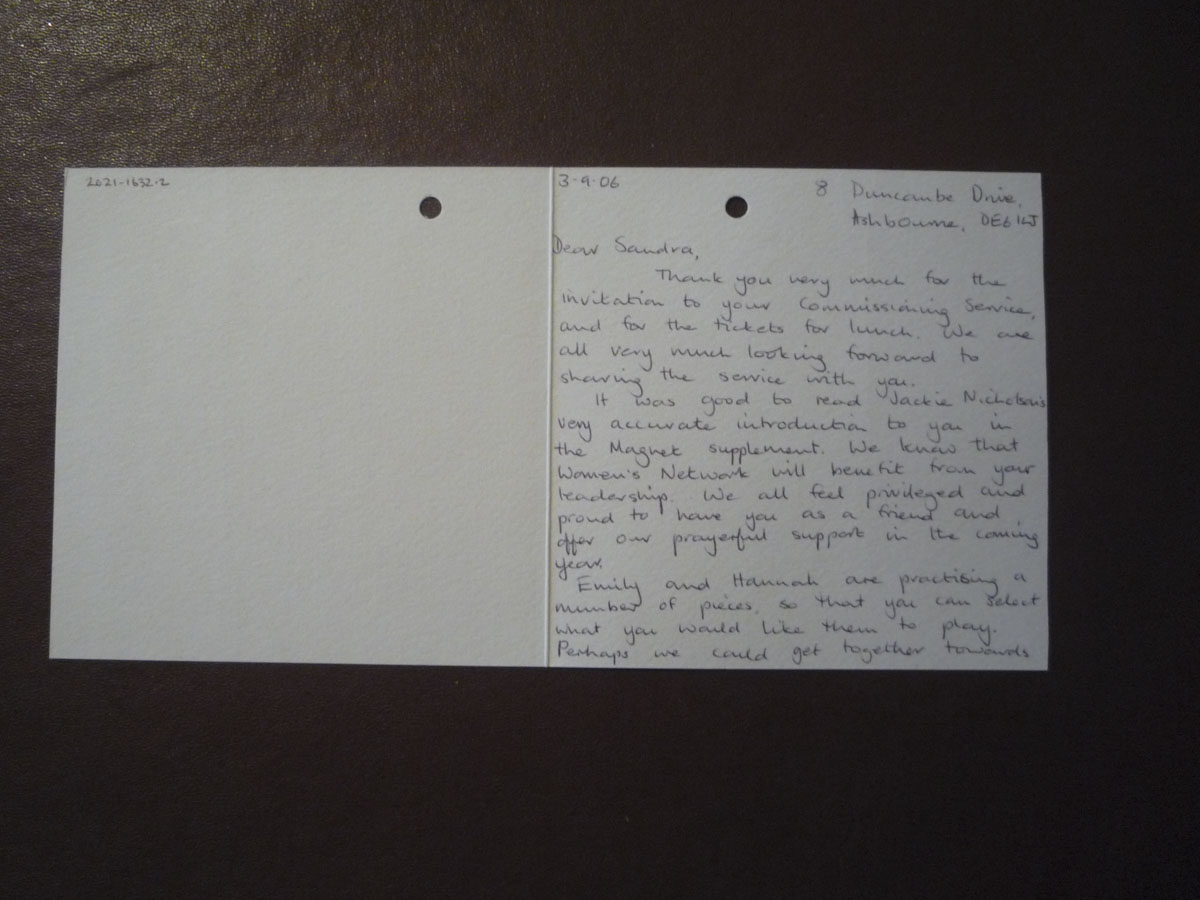 2021-1632.2
3-9-06
8 Duncombe Drive,
Ashbourne, DE6 1LJ
Dear Sandra,
Thank you very much for the
invitation to your Commissioning Service,
and for the tickets for lunch. We are
all very much looking forward to
sharing the service with you.
It was good to read Jackie Nicholson's
very accurate introduction to you in
the Magnet supplement. We know that
Women's Network will benefit from your
leadership. We all feel privileged and
proud to have you as a friend and
offer our prayerful support in the coming
year.
Emily and Hannah are practising a
number of pieces, so that you can select
what you would like them to play.
Perhaps we could get together towards